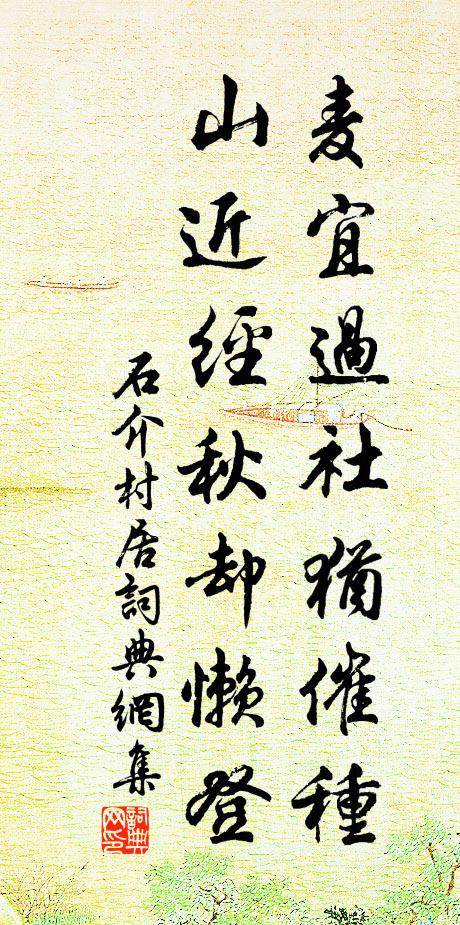 麦宜過社猶催種
山近經秋却懶登
石介村居詞典網集
詞典
网印